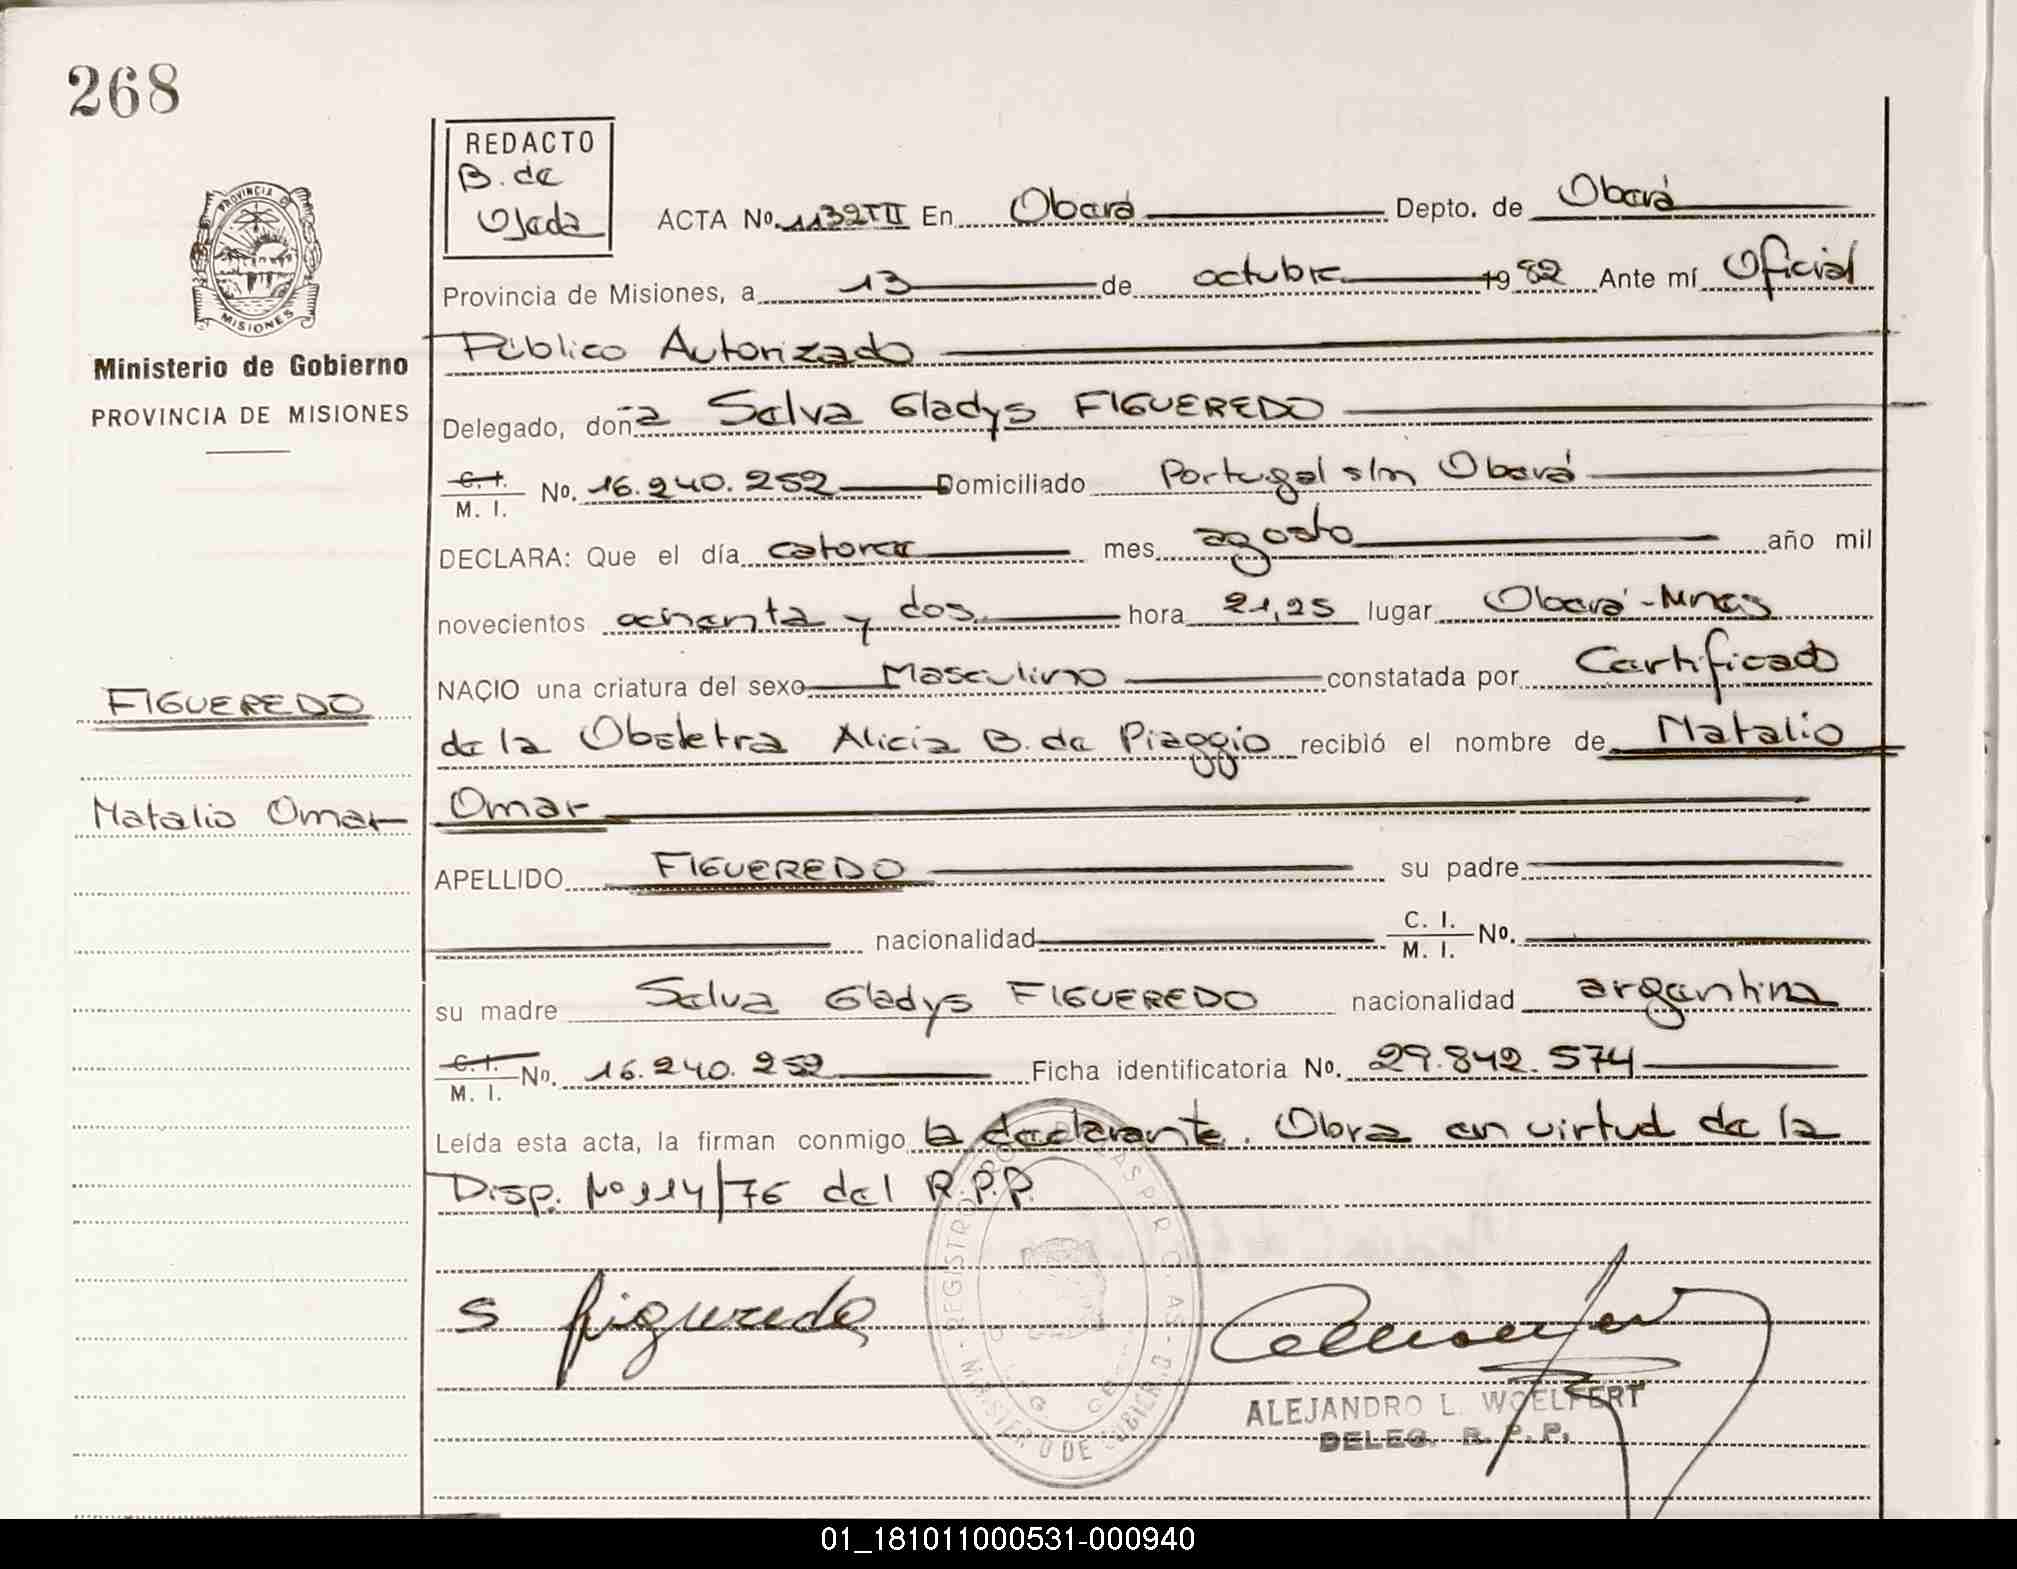 268
REDACTO
B. de
Ojeda
PROVINCIA DE
MISIONES
Ministerio de Gobierno
PROVINCIA DE MISIONES
ACTA No. 1139TII En Oberá Depto. de Oberá
Provincia de Misiones, a 13 de octubre 1982 Ante mí Oficial
Público Autorizado
Delegado, doña Selva Gladys FIGUEREDO
C.I. / M. I. No. 16.240.252 Domiciliado Portugal s/n Oberá
DECLARA: Que el día catorce mes agosto año mil
novecientos ochenta y dos hora 21,25 lugar Oberá-Mnes
NACIO una criatura del sexo Masculino constatada por Certificado
de la Obstetra Alicia B. de Piaggio recibió el nombre de Natalio
Omar
FIGUEREDO
Natalio Omar
APELLIDO FIGUEREDO su padre
nacionalidad C. I. / M. I. No.
su madre Selva Gladys FIGUEREDO nacionalidad argentina
C.I. / M. I. No. 16.240.252 Ficha identificatoria No. 29.842.574
Leída esta acta, la firman conmigo la declarante. Obra en virtud de la
Disp. No 114/76 del R.P.P.
S figueredo
ALEJANDRO L. WOELFERT
DELEG. R. P. P.
01_181011000531-000940